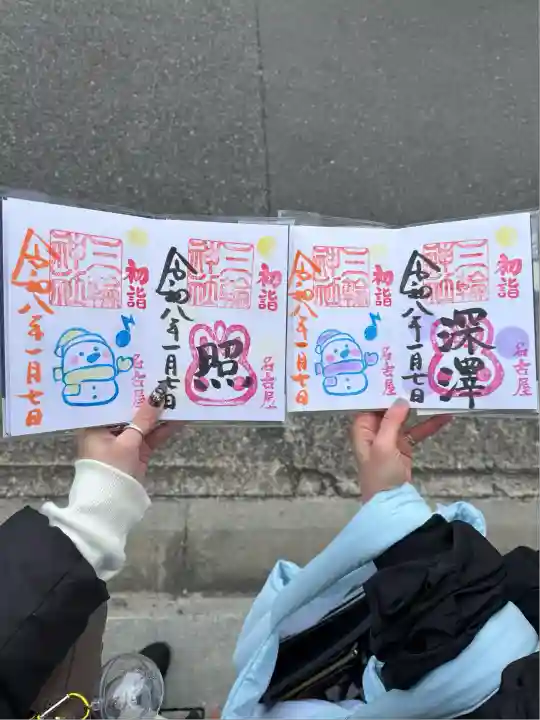 三輪
神社
初詣
令和八年一月七日
名古屋
三輪
神社
初詣
令和八年一月七日
照
名古屋
三輪
神社
初詣
令和八年一月七日
名古屋
三輪
神社
初詣
令和八年一月七日
深澤
名古屋